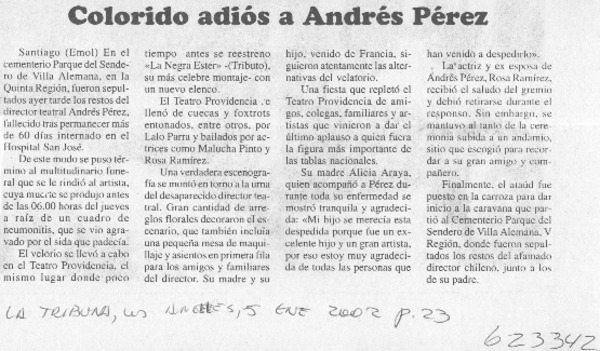 Colorido adiós a Andrés Pérez
Santiago (Emol) En el
cementerio Parque del Sende-
ro de Villa Alemana, en la
Quinta Región, fueron sepul-
tados ayer tarde los restos del
director teatral Andrés Pérez,
fallecido tras permanecer más
de 60 días internado en el
Hospital San José.
De este modo se puso tér-
mino al multitudinario fune-
ral que se le rindió al artista,
cuya muerte se produjo antes
de las 06.00 horas del jueves
a raíz de un cuadro de
neumonitis, que se vio agra-
vado por el sida que padecía.
El velorio se llevó a cabo
en el Teatro Providencia, el
mismo lugar donde poco
tiempo antes se reestreno
«La Negra Ester» -(Tributo),
su más celebre montaje- con
un nuevo elenco.
El Teatro Providencia se
llenó de cuecas y foxtrots
entonados, entre otros, por
Lalo Parra y bailados por ac-
trices como Malucha Pinto y
Rosa Ramírez.
Una verdadera escenogra-
fía se montó en torno a la urna
del desaparecido director tea-
tral. Gran cantidad de arre-
glos florales decoraron el es-
cenario, que también incluía
una pequeña mesa de maqui-
llaje y asientos en primera fila
para los amigos y familiares
del director. Su madre y su
hijo, venido de Francia, si-
guieron atentamente las alter-
nativas del velatorio.
Una fiesta que repletó el
Teatro Providencia de ami-
gos, colegas, familiares y ar-
tistas que vinieron a dar el
último aplauso a quien fuera
la figura más importante de
las tablas nacionales.
Su madre Alicia Araya,
quien acompañó a Pérez du-
rante toda su enfermedad se
mostró tranquila y agradeci-
da: «Mi hijo se merecía esta
despedida porque fue un ex-
celente hijo y un gran artista,
por eso estoy muy agradeci-
da de todas las personas que
han venido a despedirlo».
La actriz y ex esposa de
Andrés Pérez, Rosa Ramírez,
recibió el saludo del gremio
y debió retirarse durante el
responso. Sin embargo, se
mantuvo al tanto de la cere-
monia subida a un andamio,
sitio que escogió para recor-
dar a su gran amigo y com-
pañero.
Finalmente, el ataúd fue
puesto en la carroza para dar
inicio a la caravana que par-
tió al Cementerio Parque del
Sendero de Villa Alemana, V
Región, donde fueron sepul-
tados los restos del afamado
director chileno, junto a los
de su padre.
LA TRIBUNA, LOS ANGELES, 5 ENE 2002 P. 23
623342